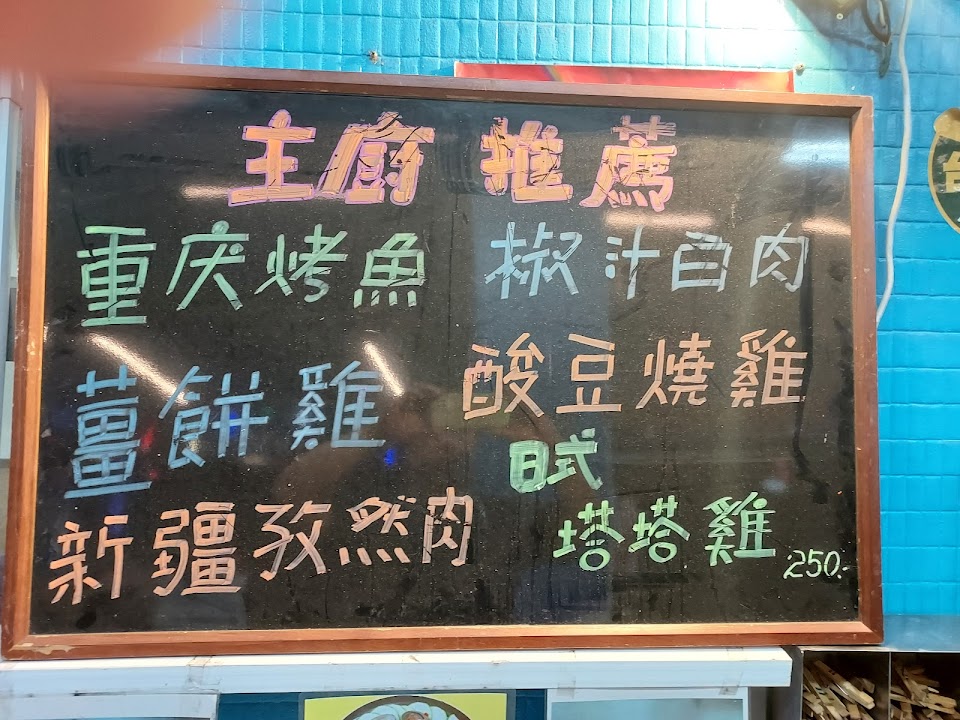 主廚 推薦
重庆烤魚 椒汁白肉
薑餅雞 酸豆燒雞
日式
新疆孜然肉 塔塔雞 250.-